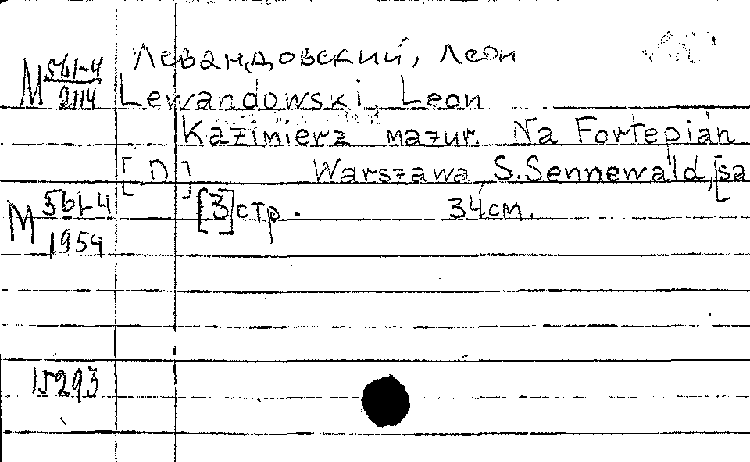 Левандовский, Леон
М 561-4/2114
Lewandowski, Leon
Kazimierz mazur. Na Fortepian
[D] Warszawa, S. Sennewald, [sa
М 561-4/1954
[3] стр. 34 cm.
15293